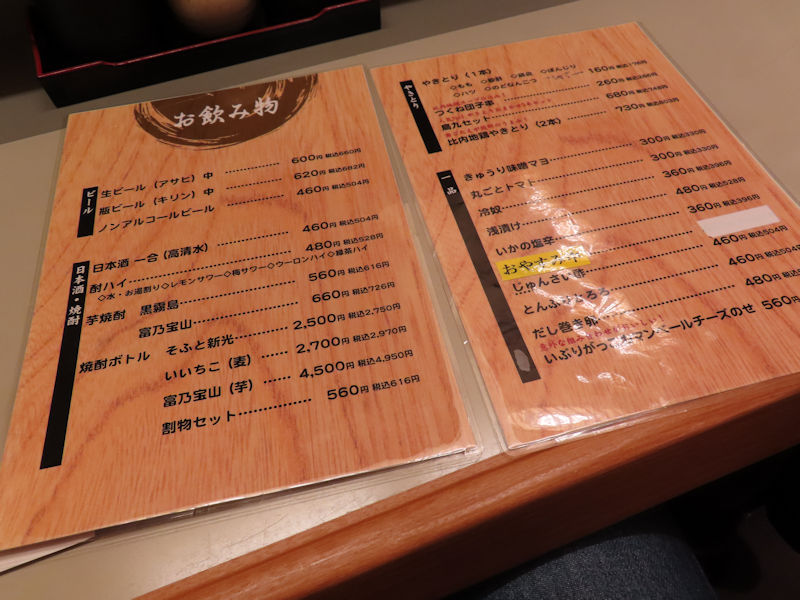 お飲み物
ビール
生ビール（アサヒ）中 600円 税込660円
瓶ビール（キリン）中 620円 税込682円
ノンアルコールビール 460円 税込504円
日本酒・焼酎
日本酒 一合（高清水） 460円 税込504円
酎ハイ 480円 税込528円
◇水・お湯割り◇レモンサワー◇梅サワー◇ウーロンハイ◇緑茶ハイ
芋焼酎 黒霧島 560円 税込616円
富乃宝山 660円 税込726円
焼酎ボトル そふと新光 2,500円 税込2,750円
いいちこ（麦） 2,700円 税込2,970円
富乃宝山（芋） 4,500円 税込4,950円
割物セット 560円 税込616円
やきとり
やきとり（1本） 160円 税込176円
◇もも ◇砂肝 ◇ぼんじり
◇ハツ ◇のどなんこつ
つくね団子串 260円
鳥九セット 680円 税込748円
比内地鶏やきとり（2本） 730円 税込803円
一品
きゅうり味噌マヨ 300円 税込330円
丸ごとトマト 300円 税込330円
冷奴 360円 税込396円
浅漬け 480円 税込528円
いかの塩辛 360円 税込396円
おやすみ中
じゅんさい酢 460円 税込504円
とんぶりとろろ 460円 税込504円
だし巻き卵 480円
いぶりがっこカマンベールチーズのせ 560円